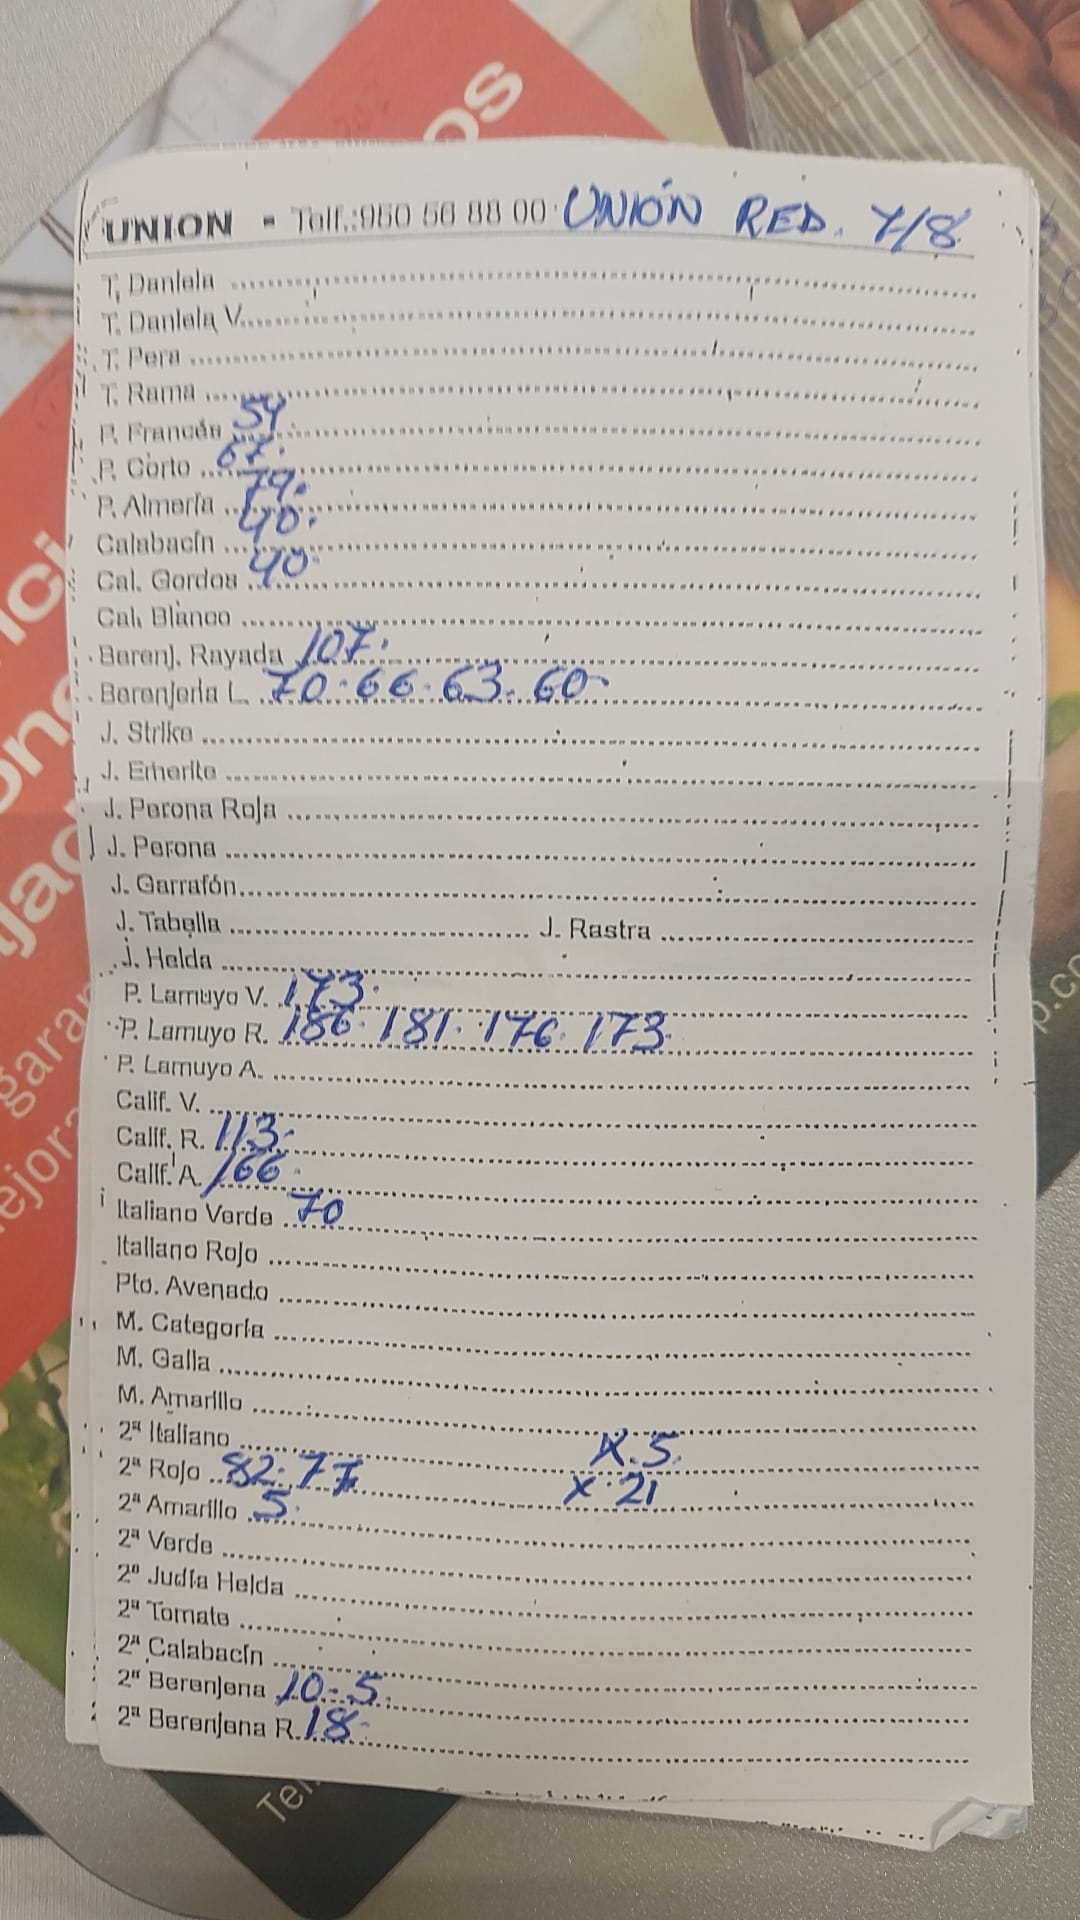 os
UNION - Telf.:950 56 88 00 UNIÓN RED. 7/8
T. Daniela
T. Daniela V.
T. Pera
T. Rama
P. Francés 54
P. Corto 67.
P. Almería 79.
Calabacín 40.
Cal. Gordos 40.
Cal. Blanco
Berenj. Rayada 107.
Berenjena L. 70.66.63.60.
J. Strike
J. Emerite
J. Perona Roja
J. Perona
J. Garrafón
J. Tabella J. Rastra
J. Helda
P. Lamuyo V. 173.
P. Lamuyo R. 186.181.176.173.
P. Lamuyo A.
Calif. V.
Calif. R. 113.
Calif. A. 166.
Italiano Verde 70
Italiano Rojo
Pto. Avenado
M. Categoría
M. Galia
M. Amarillo
2ª Italiano X.5.
2ª Rojo 82.77 X.21
2ª Amarillo 5.
2ª Verde
2ª Judía Helda
2ª Tomate
2ª Calabacín
2ª Berenjena 10.5.
2ª Berenjena R. 18.